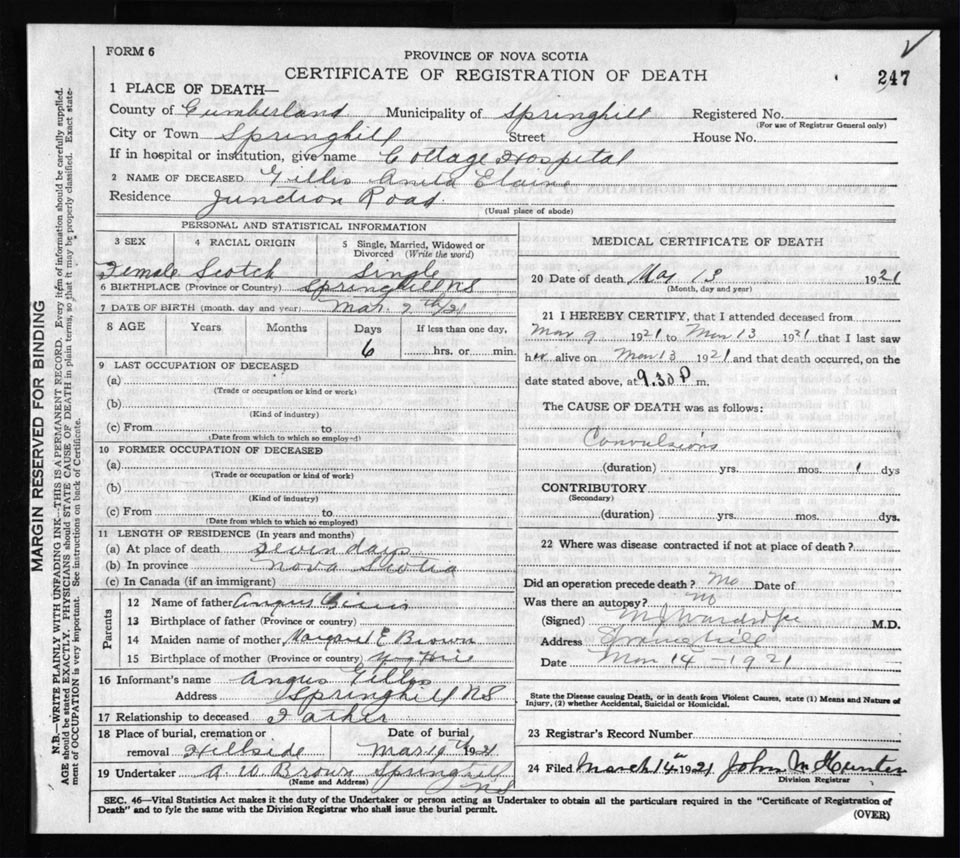 FORM 6
PROVINCE OF NOVA SCOTIA
CERTIFICATE OF REGISTRATION OF DEATH
247
1 PLACE OF DEATH—
County of Cumberland Municipality of Springhill Registered No.
(For use of Registrar General only)
City or Town Springhill Street House No.
If in hospital or institution, give name Cottage Hospital
2 NAME OF DECEASED Gillis Anita Elaine
Residence Junction Road
(Usual place of abode)
PERSONAL AND STATISTICAL INFORMATION
3 SEX 4 RACIAL ORIGIN 5 Single, Married, Widowed or Divorced (Write the word)
Female Scotch Single
6 BIRTHPLACE (Province or Country) Springhill NS
7 DATE OF BIRTH (month, day and year) Mar. 9th/21
8 AGE Years Months Days If less than one day,
6 hrs. or min.
9 LAST OCCUPATION OF DECEASED
(a)
(Trade or occupation or kind or work)
(b)
(Kind of industry)
(c) From to
(Date from which to which so employed)
10 FORMER OCCUPATION OF DECEASED
(a)
(Trade or occupation or kind of work)
(b)
(Kind of industry)
(c) From to
(Date from which to which so employed)
11 LENGTH OF RESIDENCE (In years and months)
(a) At place of death seven days
(b) In province Nova Scotia
(c) In Canada (if an immigrant)
Parents
12 Name of father Angus Gillis
13 Birthplace of father (Province or country)
14 Maiden name of mother Margaret E Brown
15 Birthplace of mother (Province or country)
16 Informant's name Angus Gillis
Address Springhill NS
17 Relationship to deceased Father
18 Place of burial, cremation or removal Hillside
Date of burial Mar 1921
19 Undertaker A. W. Brown Springhill NS
(Name and Address)
MEDICAL CERTIFICATE OF DEATH
20 Date of death 13 1921
(Month, day and year)
21 I HEREBY CERTIFY, that I attended deceased from
Mar 9 1921 to Mar 13 1921 that I last saw
her alive on Mar 13 1921 and that death occurred, on the
date stated above, at 9.30 P m.
The CAUSE OF DEATH was as follows:
Convulsions
(duration) yrs. mos. 1 dys
CONTRIBUTORY
(Secondary)
(duration) yrs. mos. dys.
22 Where was disease contracted if not at place of death?
Did an operation precede death? No Date of
Was there an autopsy? No
(Signed) M.D.
Address Springhill
Date Mar 14 - 1921
State the Disease causing Death, or in death from Violent Causes, state (1) Means and Nature of
Injury, (2) whether Accidental, Suicidal or Homicidal.
23 Registrar's Record Number
24 Filed March 14th 1921 John M Hunter
Division Registrar
SEC. 46—Vital Statistics Act makes it the duty of the Undertaker or person acting as Undertaker to obtain all the particulars required in the "Certificate of Registration of
Death" and to fyle the same with the Division Registrar who shall issue the burial permit.
(OVER)
MARGIN RESERVED FOR BINDING
N.B.—WRITE PLAINLY WITH UNFADING INK—THIS IS A PERMANENT RECORD. Every item of information should be carefully supplied.
AGE should be stated EXACTLY. PHYSICIANS should STATE CAUSE OF DEATH in plain terms, so that it may be properly classified. Exact state-
ment of OCCUPATION is very important. See instructions on back of Certificate.